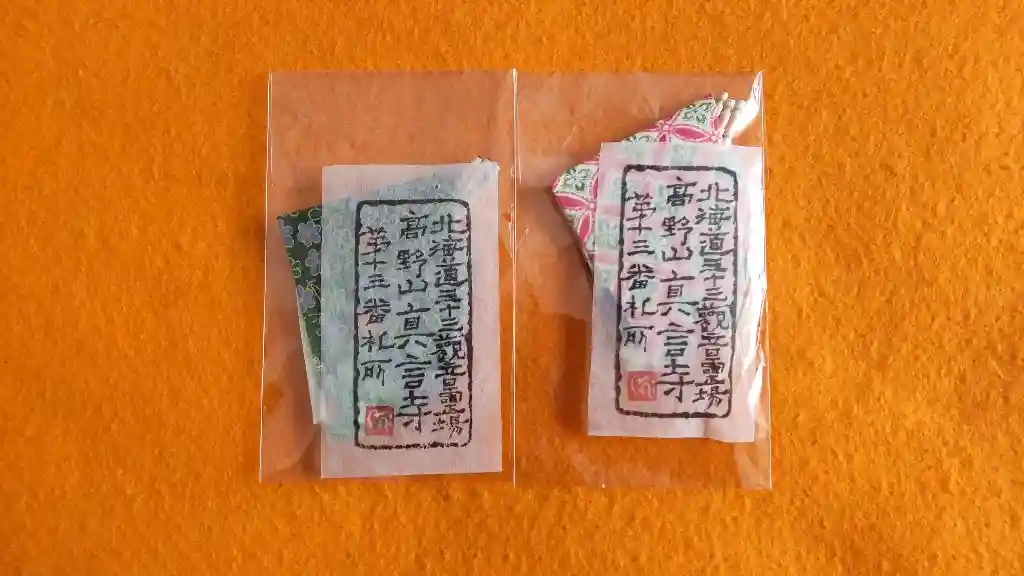 北海道三十三觀音霊場
高野山真言寺
第十三番札所
北海道三十三觀音霊場
高野山真言寺
第十三番札所